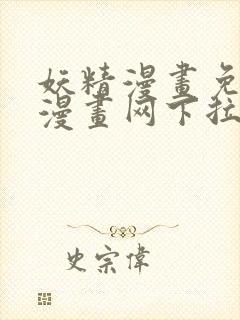 妖精漫畫免
漫畫网下拉
史宗偉